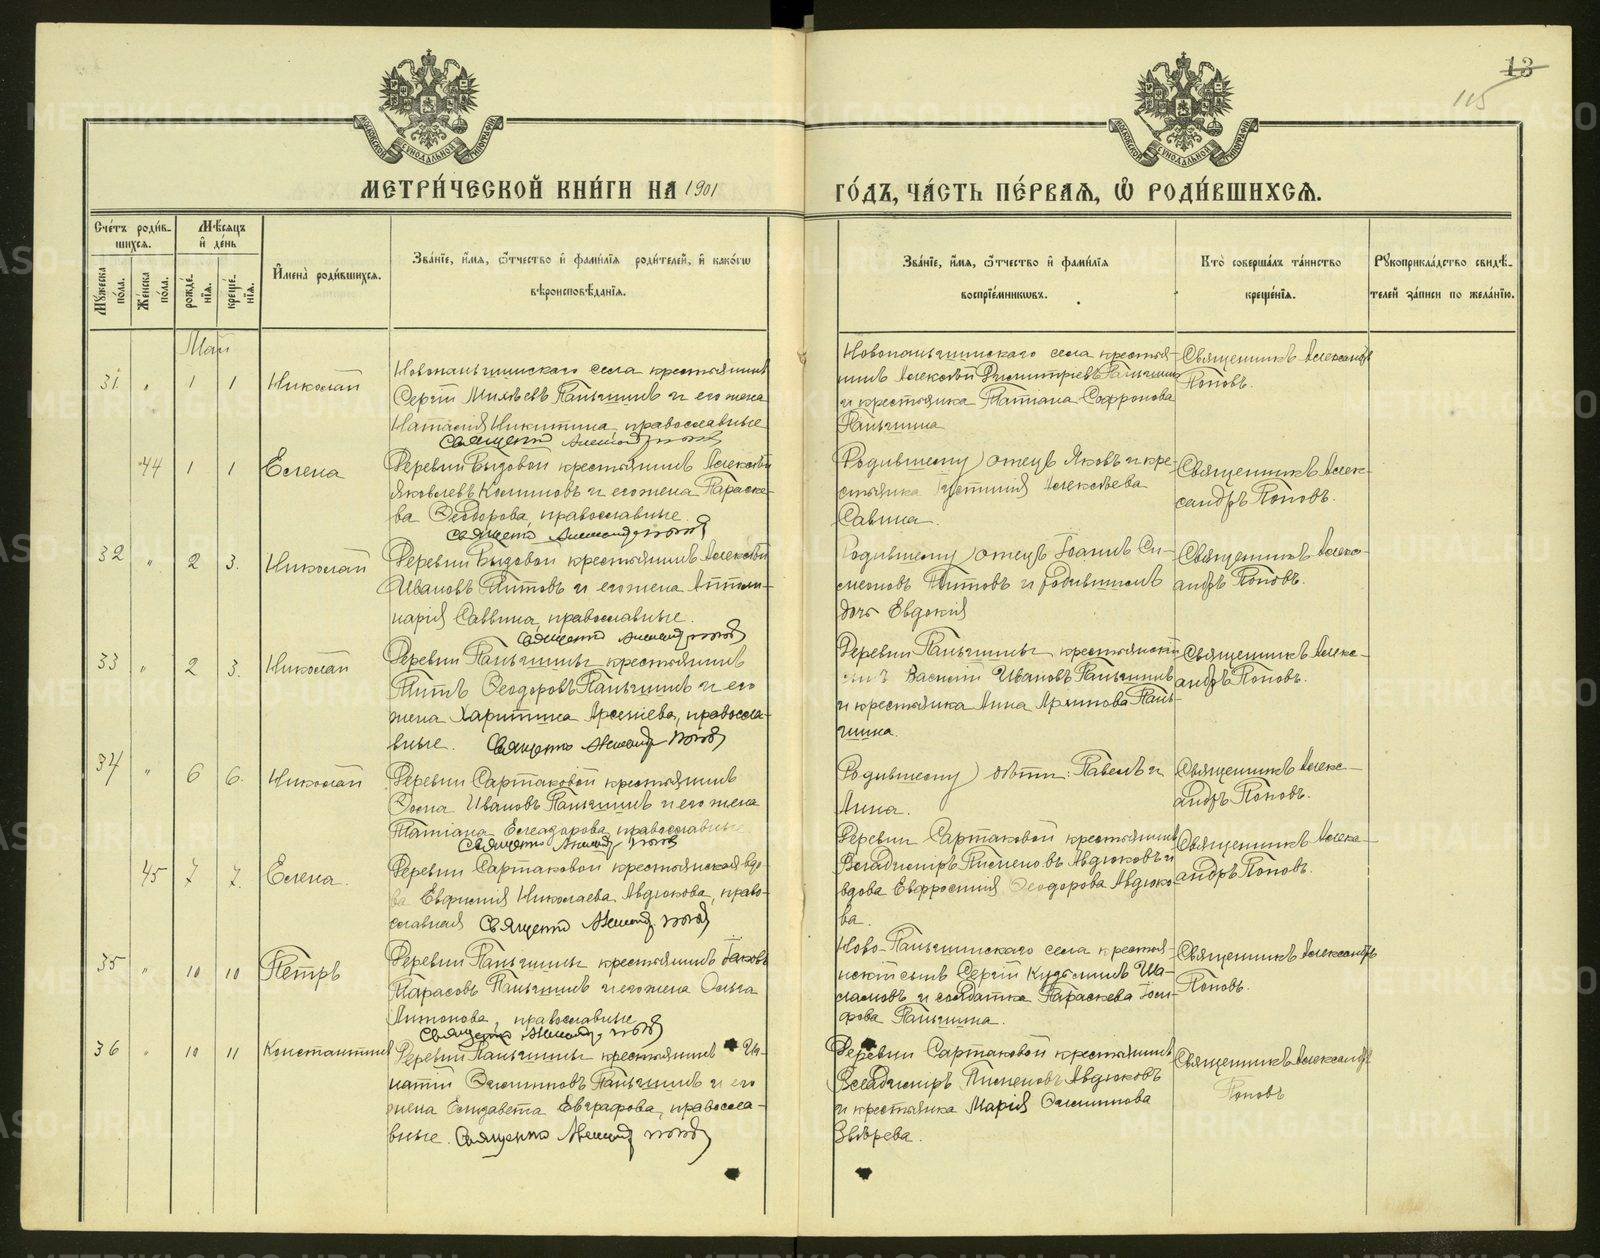 13
115
МОСКОВСКОЙ СѴНОДАЛЬНОЙ ТИПОГРАФІИ
МОСКОВСКОЙ СѴНОДАЛЬНОЙ ТИПОГРАФІИ
МЕТРИ́ЧЕСКОЙ КНИ́ГИ НА 1901 ГО́ДЪ, ЧА́СТЬ ПЕ́РВАЯ, Ѡ҆ РОДИ́ВШИХСѦ.
Сче́тъ роди́в-
шихсѧ.
Мꙋжеска по́ла.
Же́нска по́ла.
Мѣ́сѧцъ
и҆ де́нь
рожде́-
нїѧ.
креще́-
нїѧ.
И҆мена̀ роди́вшихсѧ.
Зва́нїе, и҆́мѧ, ѻ҆́тчество и҆ фами́лїѧ роди́телей, и҆ како́гѡ
вѣроисповѣ́данїѧ.
Зва́нїе, и҆́мѧ, ѻ҆́тчество и҆ фами́лїѧ
воспрїе́мникѡвъ.
Кто̀ соверша́лъ та́инство
креще́нїѧ.
Рꙋкоприкла́дство свидѣ́-
телей за́писи по жела́нїю.
Май
31 " 1 1 Николай
Новопаньшинскаго села крестьянинъ
Сергій Паньшинъ и его жена
Наталія Никитина, православные
Священ Александр Попов
Новопаньшинскаго села крестья-
нинъ Алексѣй Димитріевъ Паньшинъ
и крестьянка Татіана Софронова
Паньшина
Священникъ Александръ
Поповъ.
44 1 1 Елена
Деревни крестьянинъ Алексѣй
Яковлевъ и его жена Параске-
ва Ѳеодорова, православные.
Священ Александр Попов
Родившему) отецъ Яковъ и кре-
стьянка Устинія Алексѣева
Савина.
Священникъ Алек-
сандръ Поповъ.
32 " 2 3. Николай
Деревни крестьянинъ Алексѣй
Ивановъ Титовъ и его жена Аполи-
нарія Саввина, православные.
Священ Александр Попов
Родившему) отецъ Іоаннъ Си-
меоновъ Титовъ и родившаго
дочь Евдокія
Священникъ Алекс-
андръ Поповъ.
33 " 2 3. Николай
Деревни Паньшины крестьянинъ
Титъ Ѳеодоровъ Паньшинъ и его
жена Харитина Арсеніева, правосла-
вные. Священ Александр Попов
Деревни Паньшины крестьянскій
сынъ Василій Ивановъ Паньшинъ
и крестьянка Анна Пань-
шина.
Священникъ Алекс-
андръ Поповъ.
34 " 6 6. Николай
Деревни Сартаковой крестьянинъ
Ѳома Ивановъ Паньшинъ и его жена
Татіана Елеадорова, православные
Священ Александр Попов
Родившему) дѣти: Павелъ и
Анна.
Священникъ Алекс-
андръ Поповъ.
45 7 7. Елена.
Деревни Сартаковой крестьянская вдо-
ва Евфимія Николаева Авдюкова, право-
славная Священ Александр Попов
Деревни Сартаковой крестьянинъ
Владиміръ Пименовъ Авдюковъ и
вдова Евфросинія Ѳеодорова Авдюко-
ва.
Священникъ Алекс-
андръ Поповъ.
35 " 10 10 Петръ
Деревни Паньшины крестьянинъ Іаковъ
Тарасовъ Паньшинъ и его жена Ольга
Антонова, православные
Священ Александр Попов
Ново-Паньшинскаго села крестья-
нскій сынъ Сергій Кузьминъ Ша-
ламовъ и солдатка Параскева Іоси-
фова Паньшина.
Священникъ Александръ
Поповъ.
36 " 10 11 Константинъ
Деревни Паньшины крестьянинъ Иг-
натій Филипповъ Паньшинъ и его
жена Елизавета Евграфова, правосла-
вные. Священ Александр Попов
Деревни Сартаковой крестьянинъ
Владиміръ Пименовъ Авдюковъ
и крестьянка Марія Филиппова
Звѣрева.
Священникъ Александръ
Поповъ
METRIKI.GASO-URAL.RU